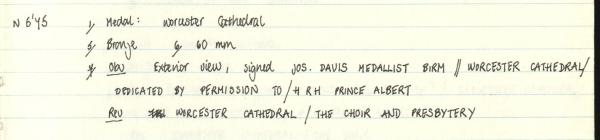 N 5'45 1, Medal: Worcester Cathedral
5, Bronze 6, 60 mm
8, Obv Exterior view, signed JOS. DAVIS MEDALLIST BIRM // WORCESTER CATHEDRAL/
DEDICATED BY PERMISSION TO / H R H PRINCE ALBERT
Rev WORCESTER CATHEDRAL / THE CHOIR AND PRESBYTERY